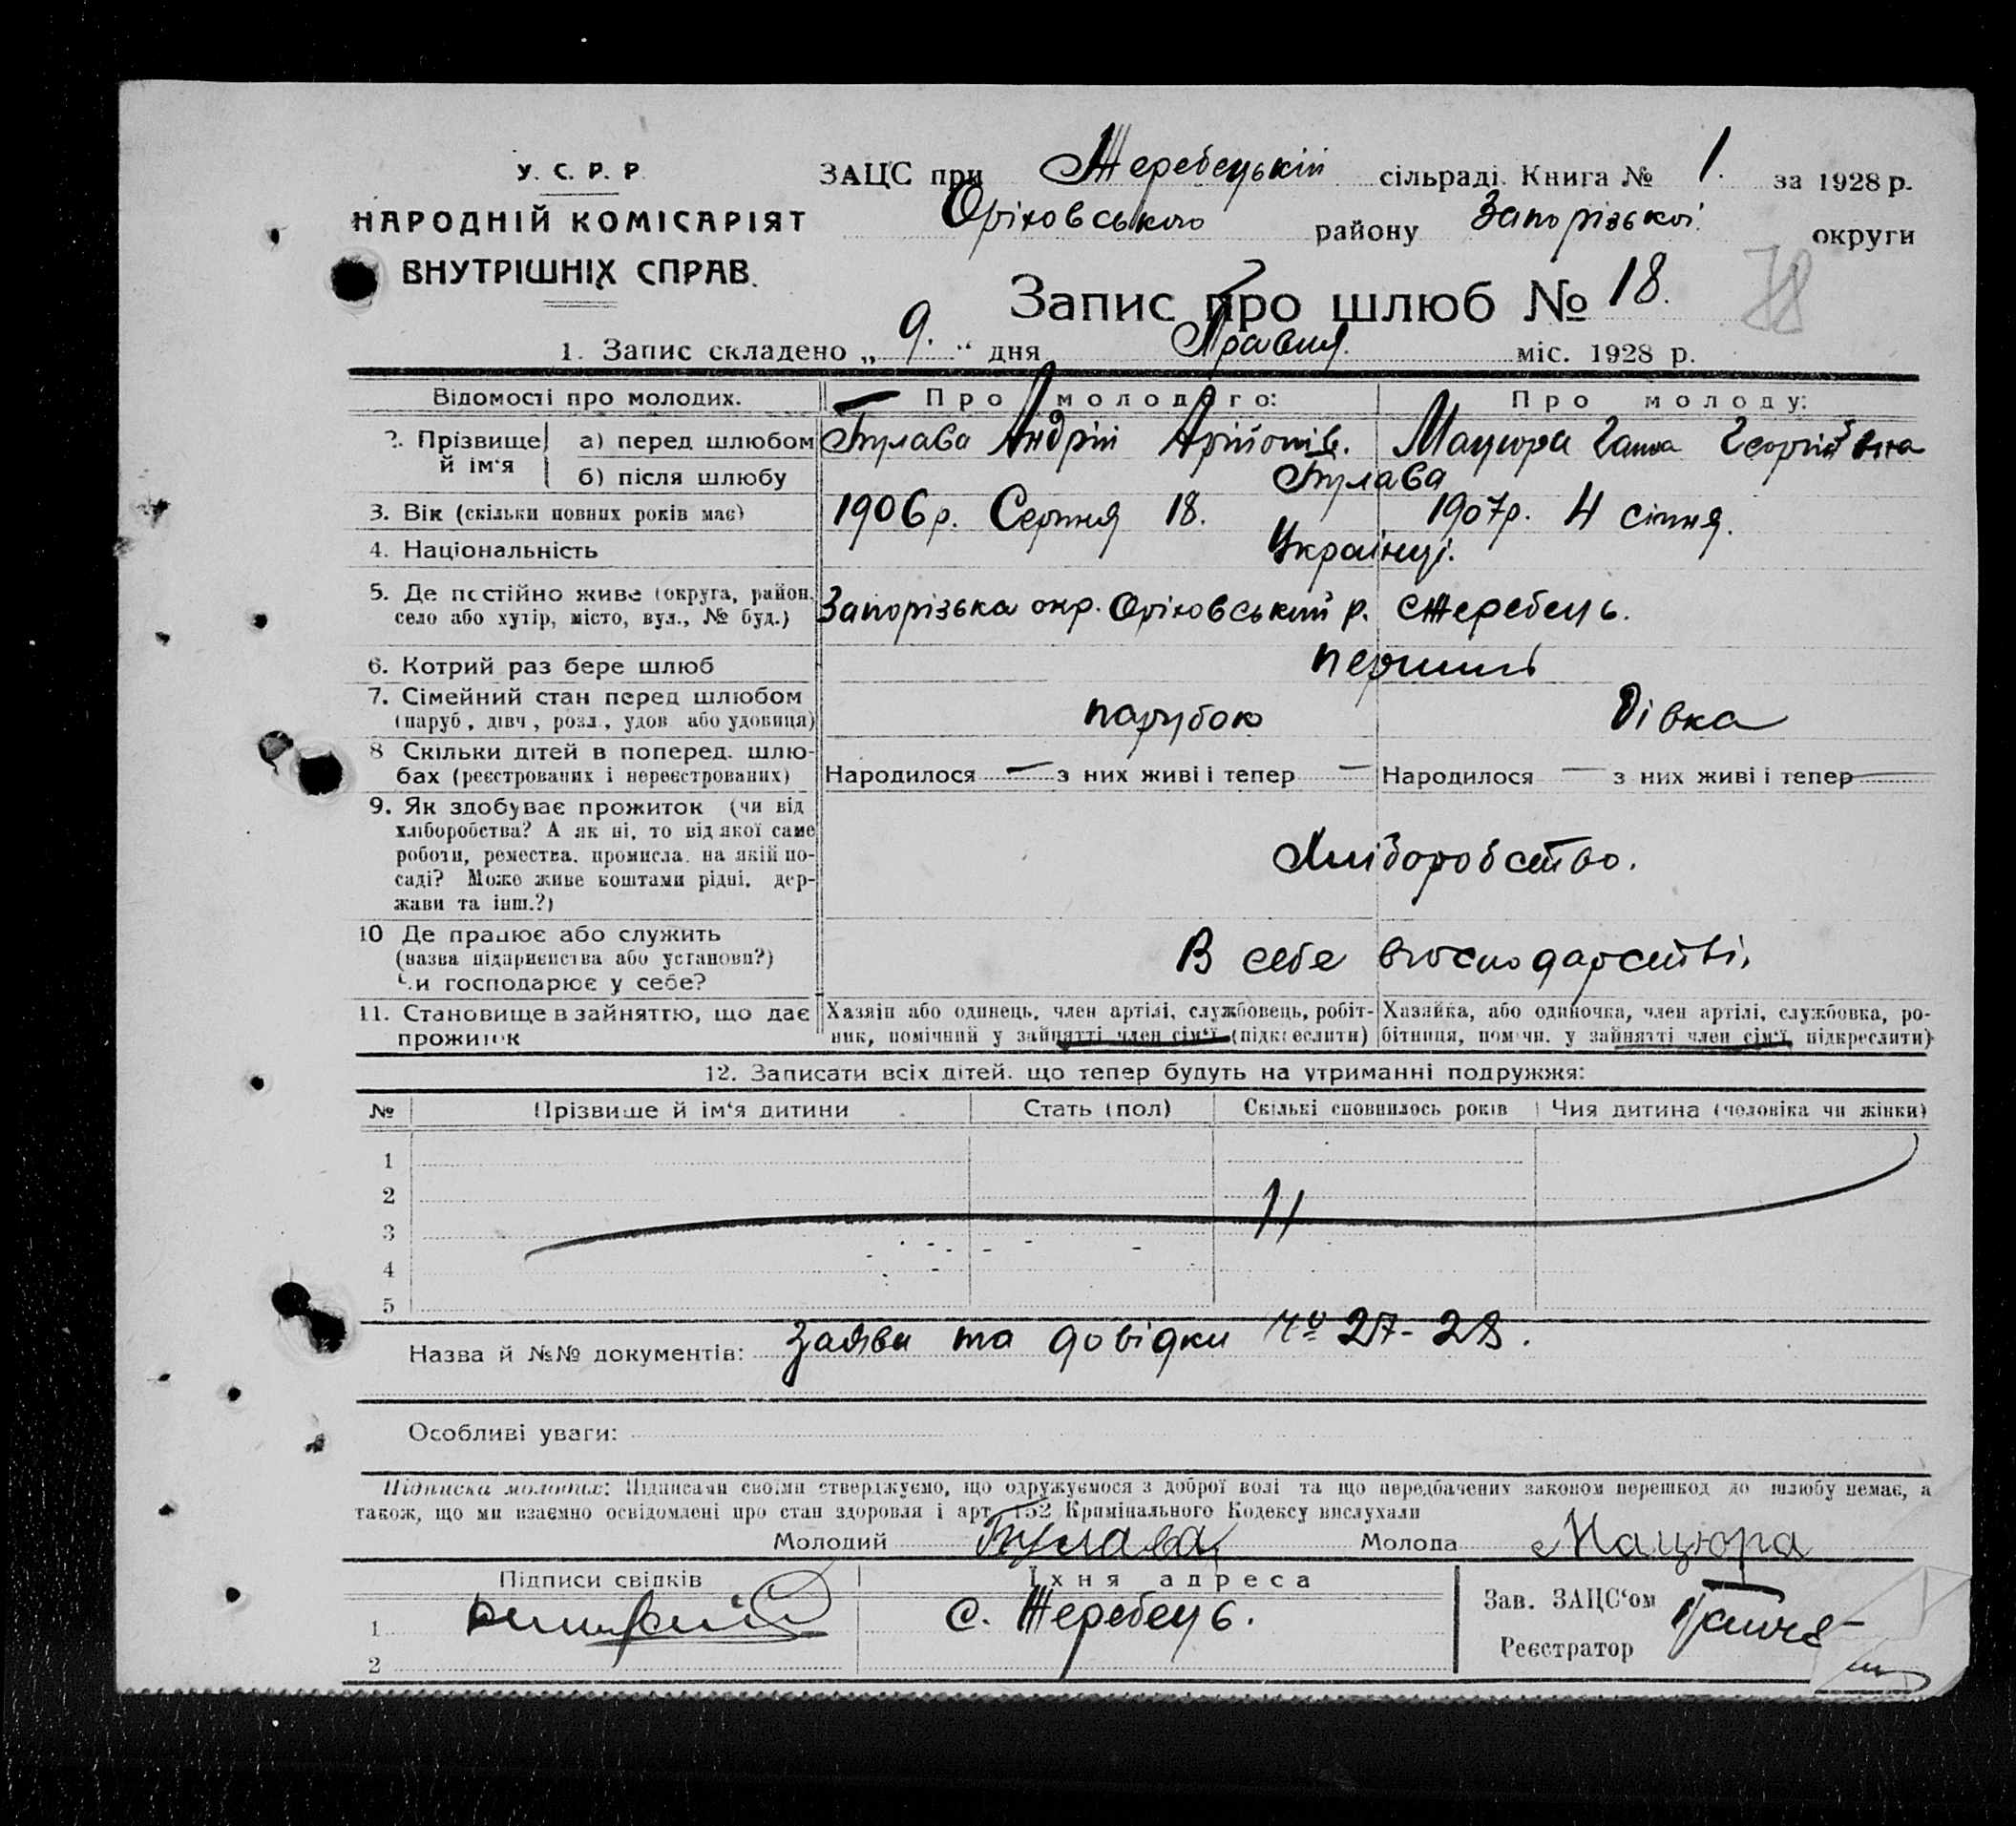 У. С. Р. Р.
НАРОДНІЙ КОМІСАРІЯТ
ВНУТРІШНІХ СПРАВ.
ЗАЦС при Жеребецькій сільраді. Книга № 1. за 1928 р.
Оріховського району Запорізької округи
Запис про шлюб № 18.
78
1. Запис складено „ 9. “ дня Травня. міс. 1928 р.
Відомості про молодих. Про молодого: Про молоду:
2. Прізвище й ім'я а) перед шлюбом Булава Андрій Мацюра Ганна Георгіївна
б) після шлюбу Булава
3. Вік (скільки повних років має) 1906 р. Серпня 18. 1907р. 4 січня.
4. Національність Українці.
5. Де постійно живе (округа, район, Запорізька окр. Оріховський р. Жеребець.
село або хутір, місто, вул., № буд.)
6. Котрий раз бере шлюб перший
7. Сімейний стан перед шлюбом парубок дівка
(паруб., дівч., розл., удов. або удовиця)
8 Скільки дітей в поперед. шлю-
бах (реєстрованих і нереєстрованих) Народилося — з них живі і тепер — Народилося — з них живі і тепер —
9. Як здобуває прожиток (чи від
хліборобства? А як ні, то від якої саме
роботи, ремества, промисла, на якій по- Хліборобство.
саді? Може живе коштами рідні, дер-
жави та інш.?)
10 Де працює або служить
(назва підприємства або установи?) В себе вгосподарстві.
Чи господарює у себе?
11. Становище в зайняттю, що дає Хазяїн або одинець, член артілі, службовець, робіт- Хазяйка, або одиночка, член артілі, службовка, ро-
прожиток ник, помічний у зайнятті член сім'ї (підкреслити) бітниця, помічн. у зайнятті член сім'ї, підкреслити)
12. Записати всіх дітей, що тепер будуть на утриманні подружжя:
№ Прізвище й ім'я дитини Стать (пол) Скількі сповнилось років Чия дитина (чоловіка чи жінки)
1
2
3
4
5
Назва й №№ документів: Заяви та довідки № 27-28.
Особливі уваги:
Підписка молодих: Підписами своїми стверджуємо, що одружуємося з доброї волі та що передбачених законом перешкод до шлюбу немає, а
також, що ми взаємно освідомлені про стан здоровля і арт. 152 Кримінального Кодексу вислухали
Молодий Булава Молода Мацюра
Підписи свідків Їхня адреса
1 с. Жеребець. Зав. ЗАЦС'ом
2 Реєстратор